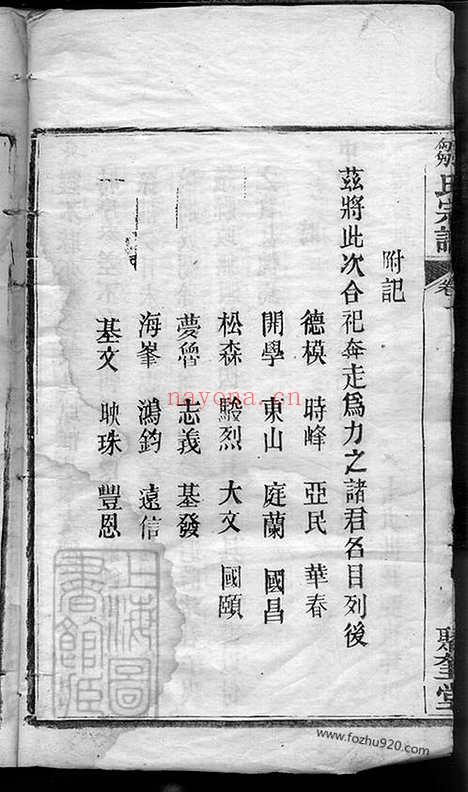 鄒氏宗譜
卷
聚奎堂
附記
茲將此次合祀奔走爲力之諸君名目列後
德模 時峰 亞民 華春
開學 東山 庭蘭 國昌
松森 毅烈 大文 國頤
夢魯 志義 基發
海峯 鴻鈞 遠信
基文 映珠 豐恩
上海圖書館藏
nayona.cn
www.fozhu920.com